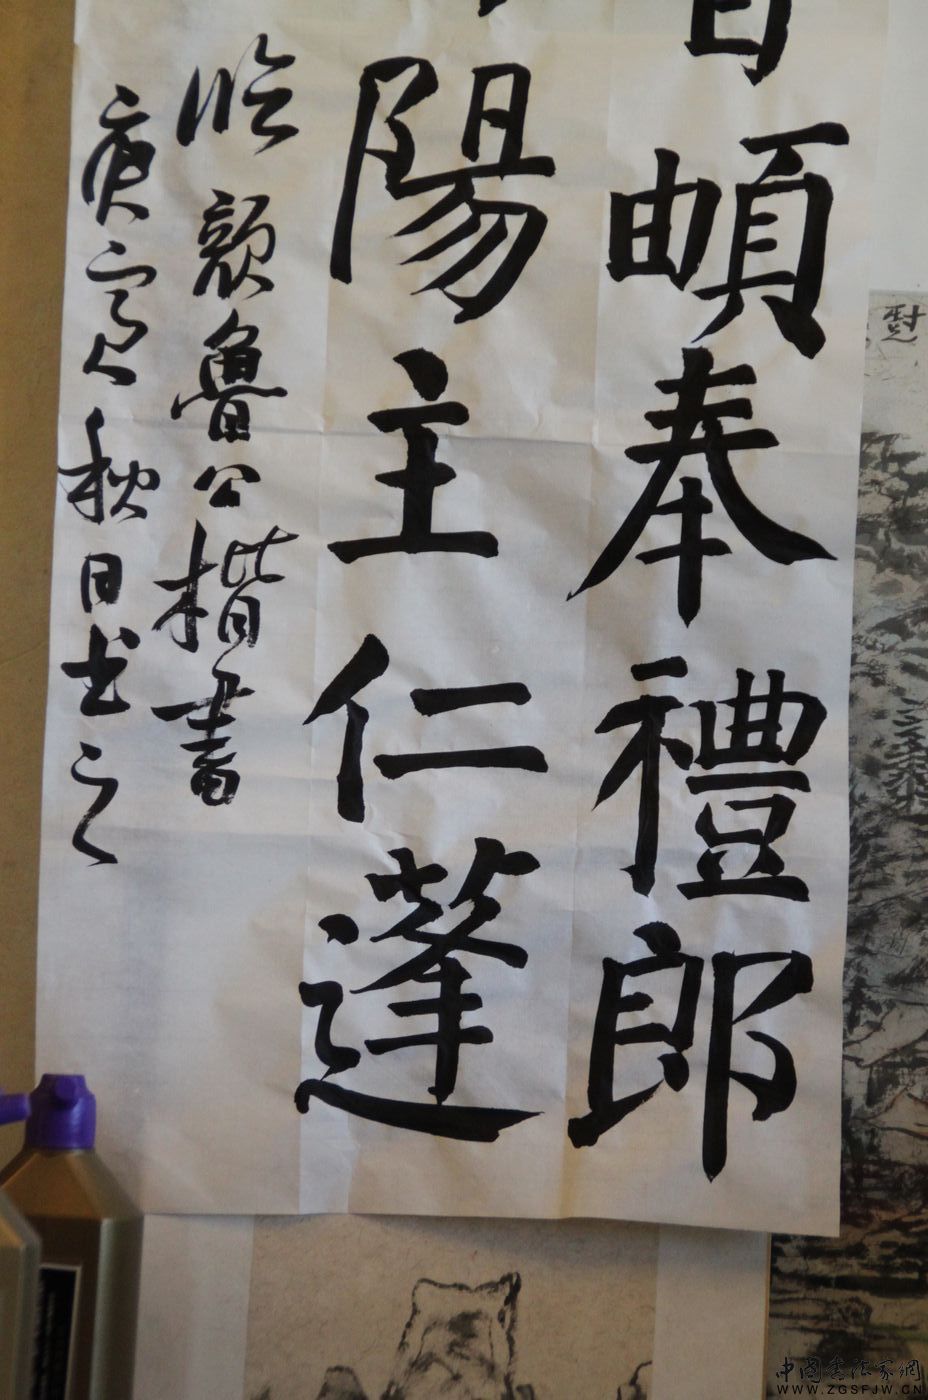 頔奉禮郎
陽主仁蓬
临颜魯公楷書
庚寅秋日书之
中國書法家網
WWW.ZGSFJW.CN